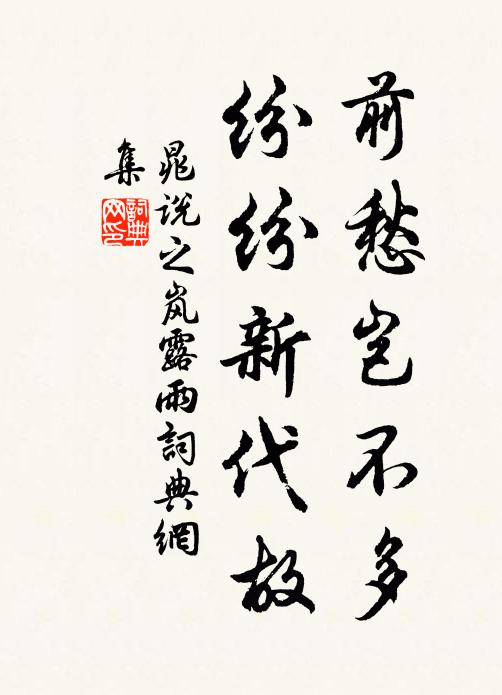 前愁岂不多
纷纷新代故
晁说之岚露雨詞典網
集
詞典
网印